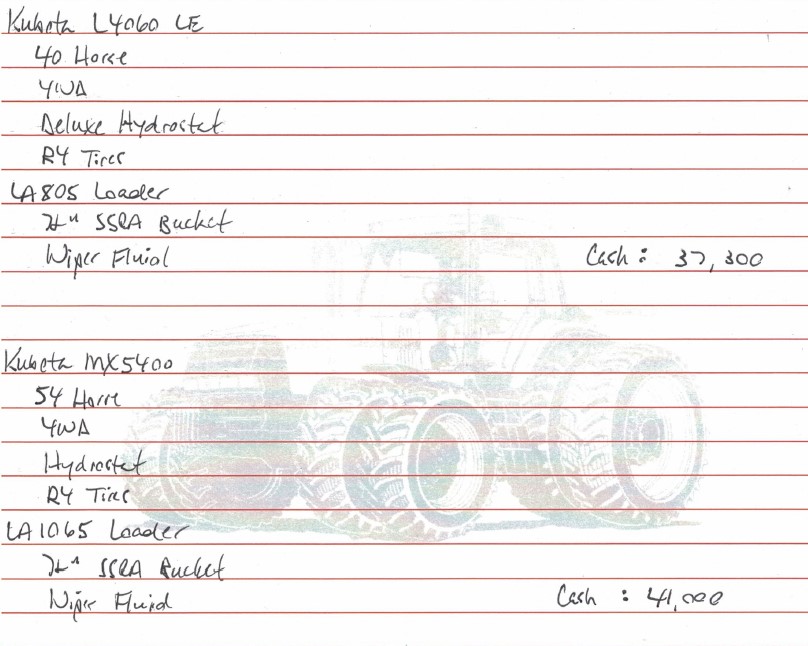 Kubota L4060 LE
40 Horse
4WD
Deluxe Hydrostat
R4 Tires
LA805 Loader
72" SSQA Bucket
Wiper Fluid Cash: 37,300
Kubota MX5400
54 Horse
4WD
Hydrostat
R4 Tires
LA1065 Loader
72" SSQA Bucket
Wiper Fluid Cash: 41,000